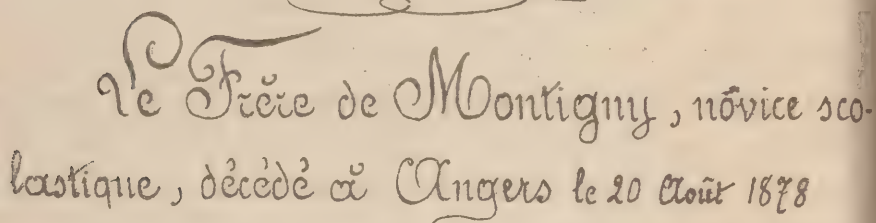 Le Frère de Montigny, novice sco-
lastique, décédé à Angers le 20 Août 1878